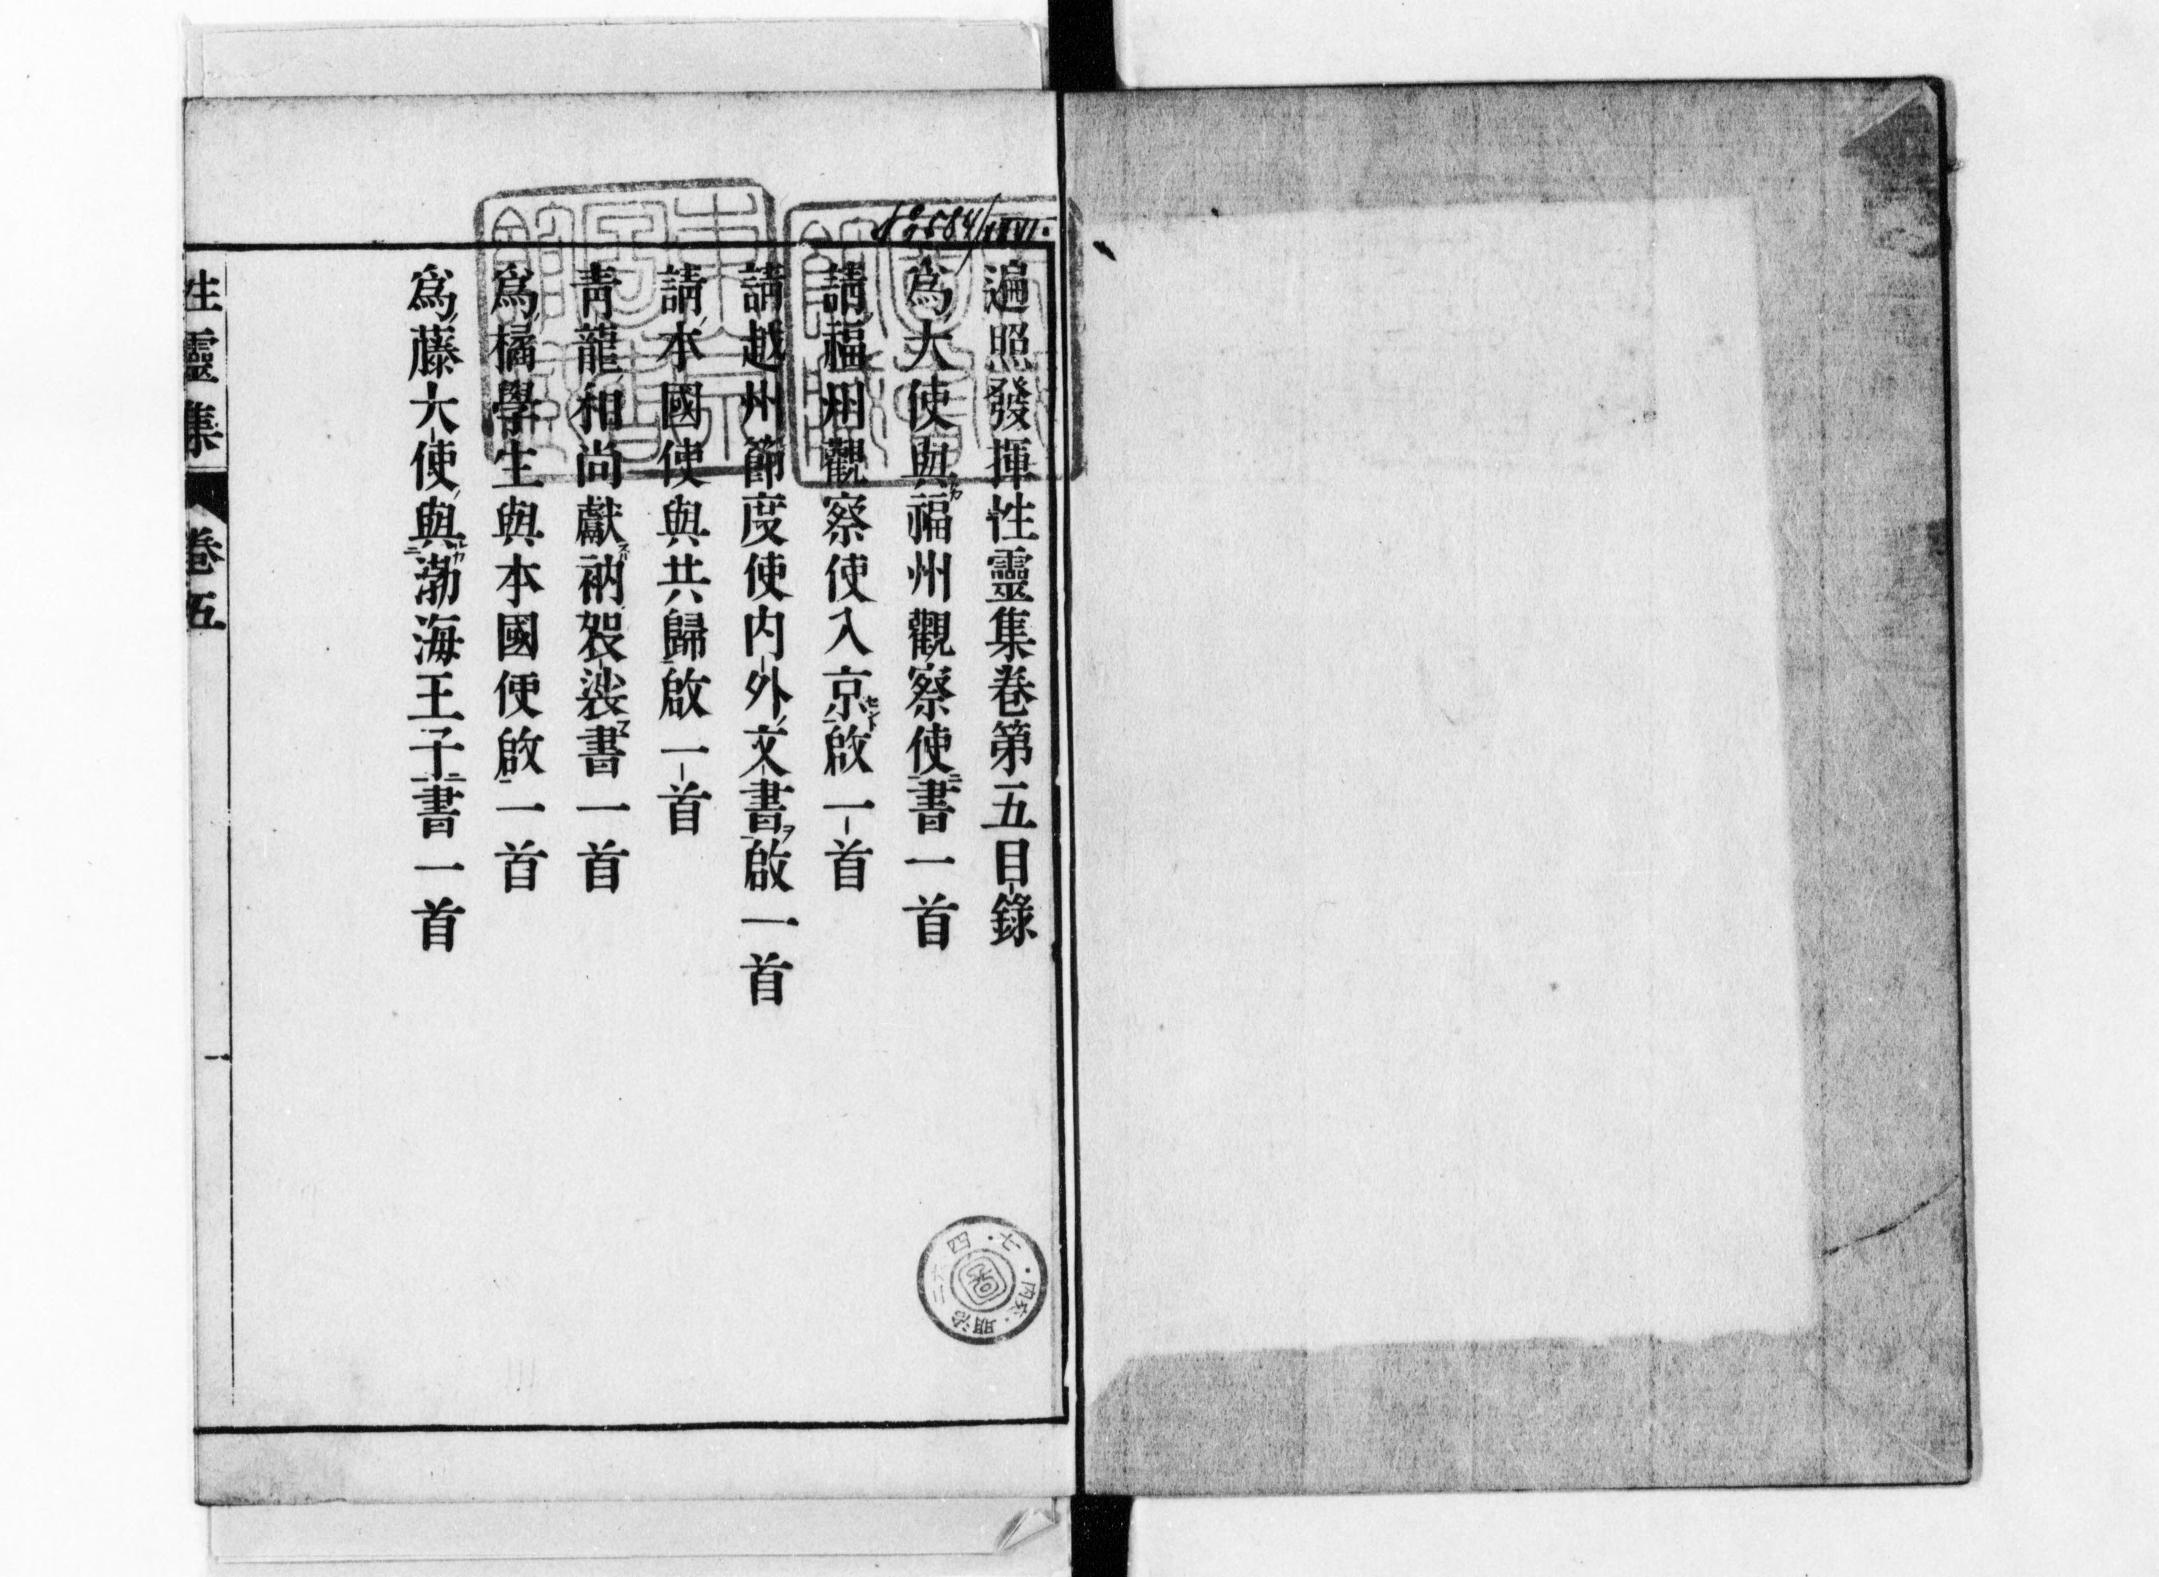 遍照發揮性靈集卷第五目錄
爲大使與福州觀察使書一首
請福州觀察使入京啟一首
請越州節度使内外文書啟一首
請本國使與共歸啟一首
靑龍和尚獻衲袈裟書一首
爲橘學生與本國使啟一首
爲藤大使與渤海王子書一首
性靈集 卷五 一
明治
四
七